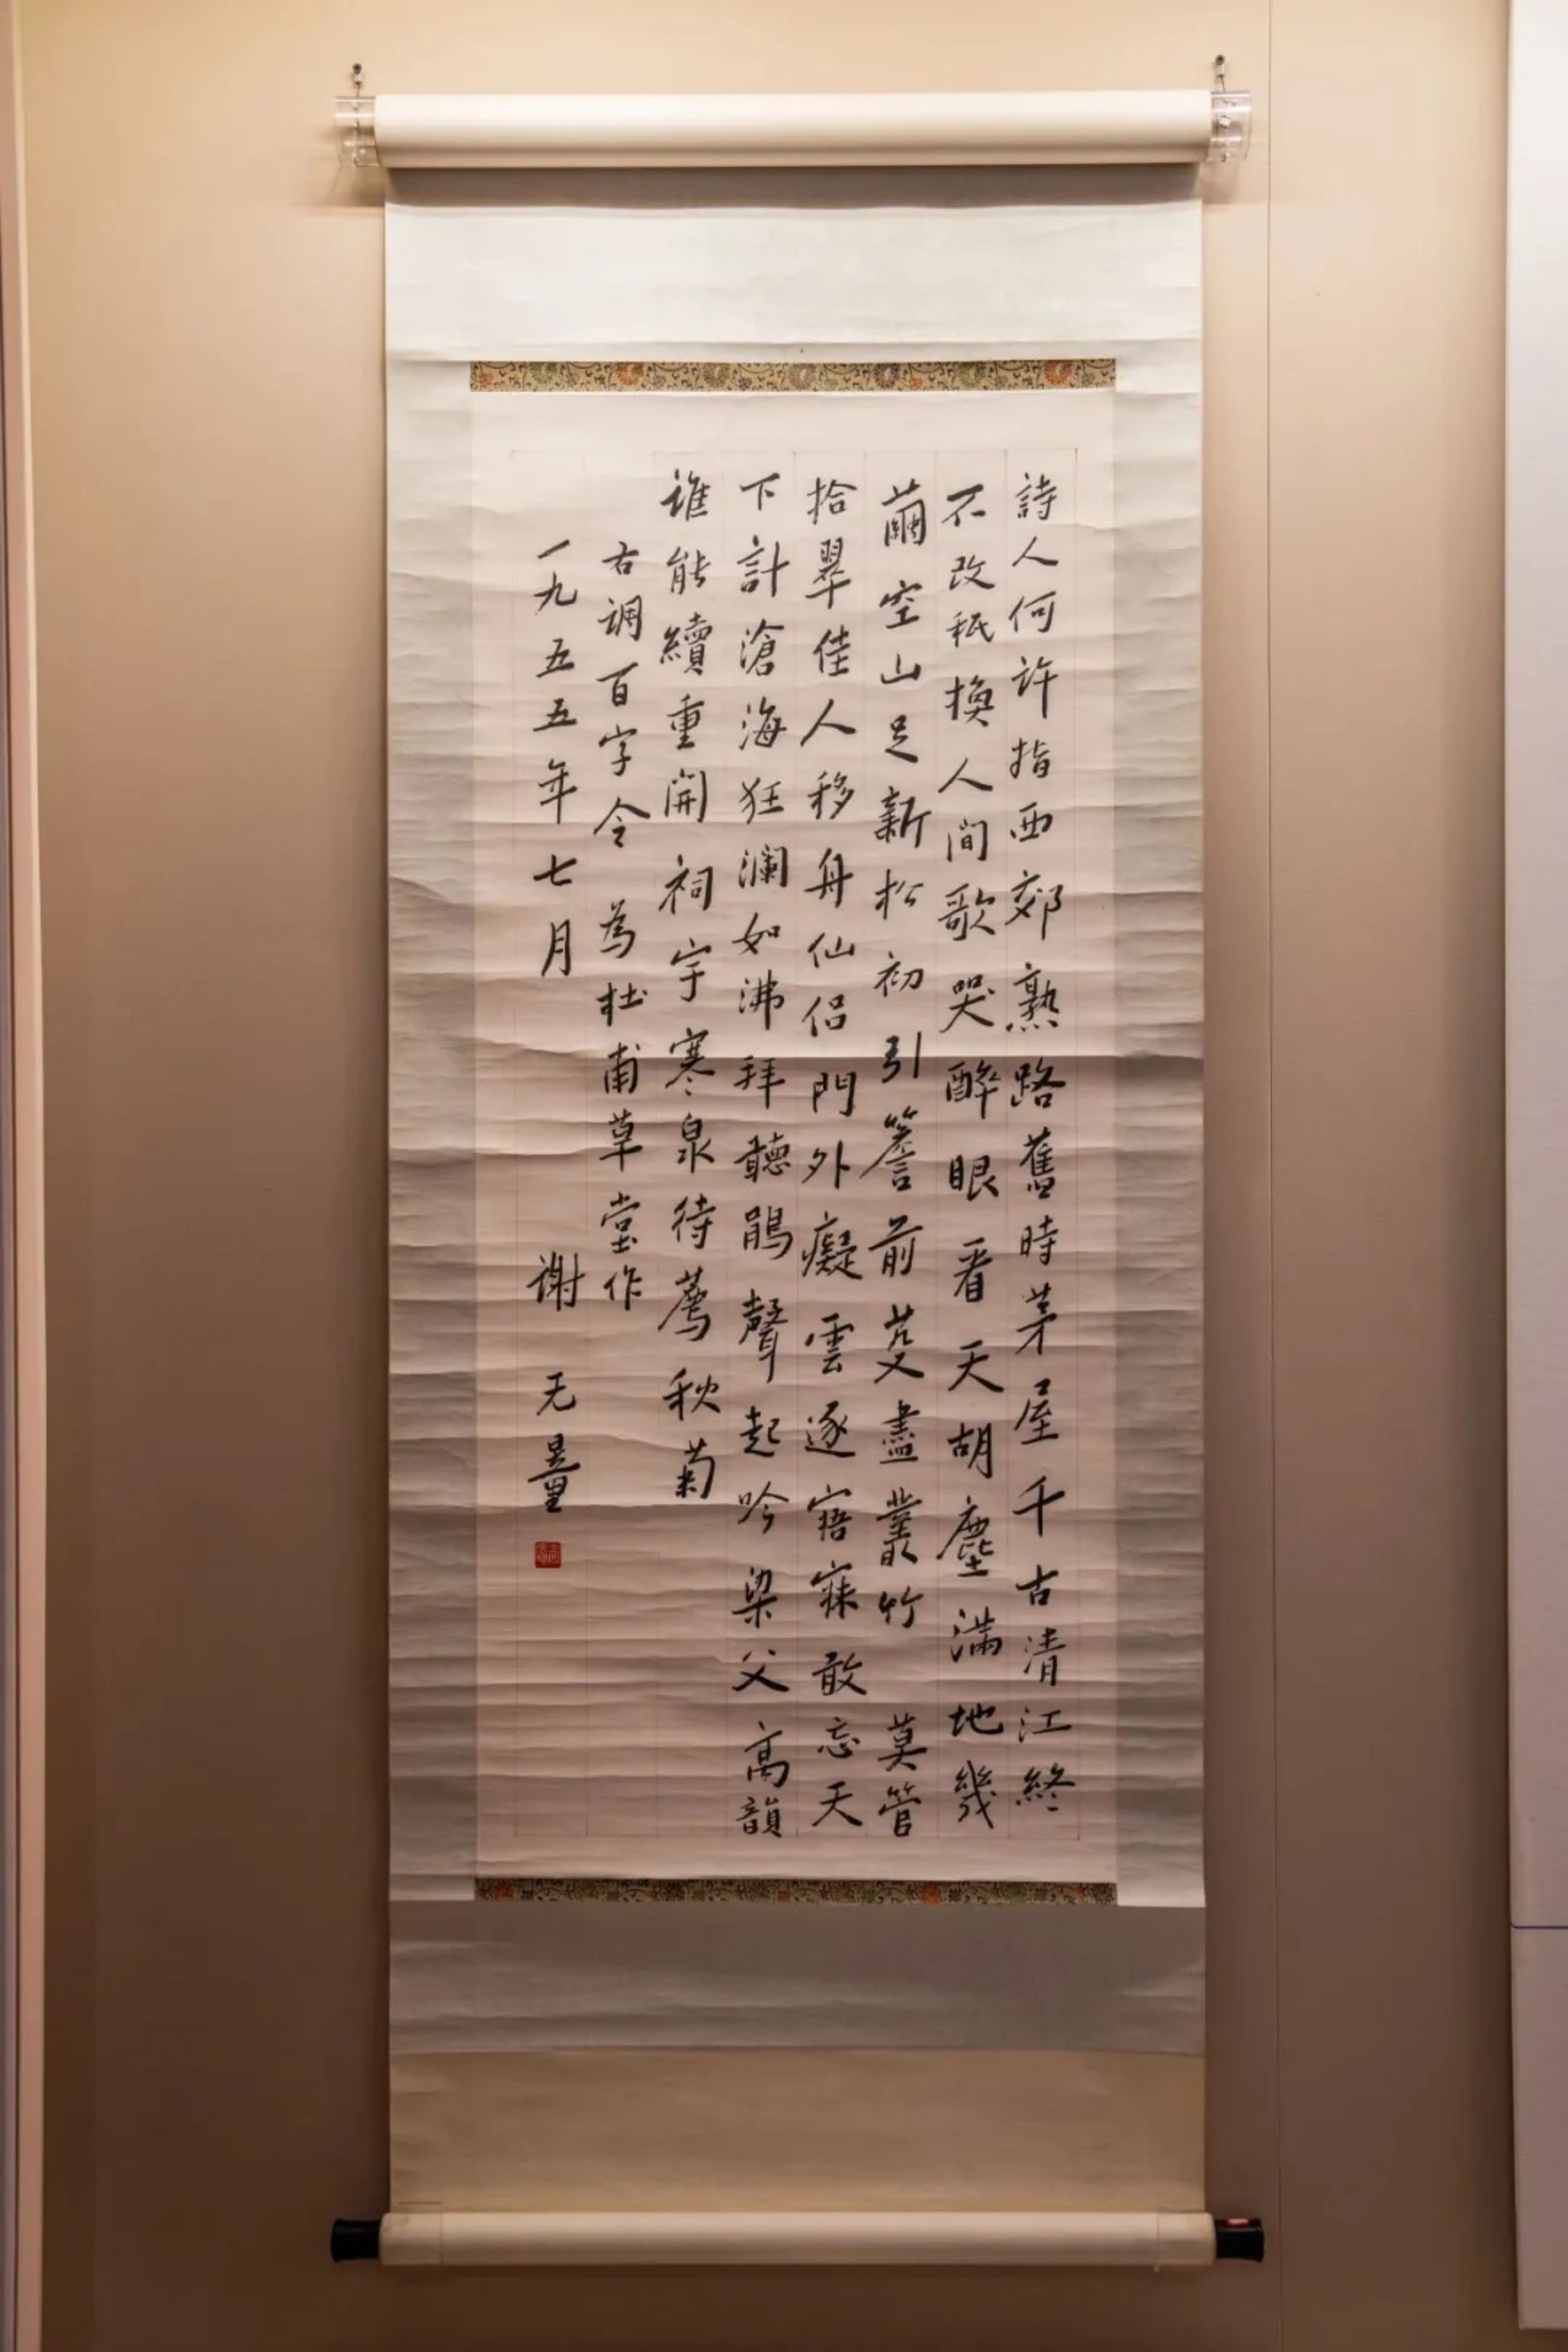 詩人何許指西郊熟路舊時茅屋千古清江終
不改秖換人間歌哭醉眼看天胡塵滿地幾
繭空山足新松初引簷前芟盡叢竹 莫管
拾翠佳人移舟仙侶門外癡雲逐寤寐敢忘天
下計滄海狂瀾如沸拜聽鵑聲起吟梁父高韻
谁能續重開祠宇寒泉待薦秋菊
右调百字令 為杜甫草堂作
一九五五年七月 谢无量